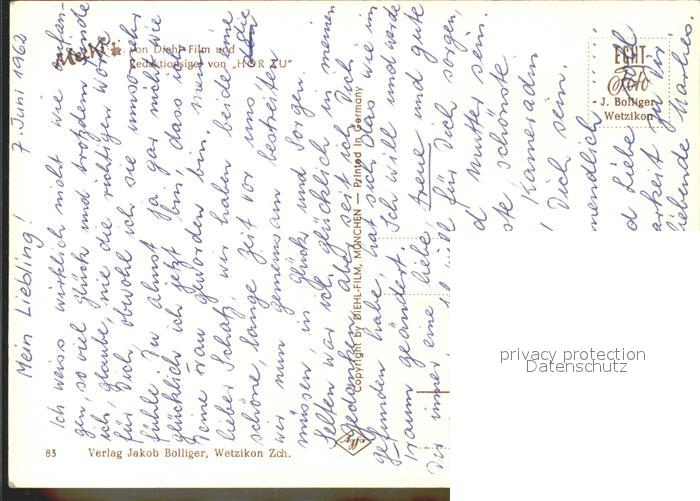 7. Juni 1962
Mein Liebling!
Ich weiss wirklich nicht wie anfan-
gen, so viel Glück und trotzdem finde
ich, glaube, nie die richtigen Worte
für Dich, obwohl ich sie umso mehr
fühle. Du ahnst ja gar nicht wie
glücklich ich jetzt bin, dass ich
Deine Frau geworden bin. mein
lieber Schatz, wir haben beide eine
schöne, lange Zeit vor uns die
wir nun gemeinsam bestreiten
müssen, in Glück und Sorgen.
Selten war ich glücklich in meinen
Gedanken, aber seit ich Dich
gefunden habe, hat sich das wie im
Traum geändert. Ich will und werde
Dir immer eine liebe, treue und gute
für Dich sorgen,
d Mutter sein.
ste schönste
Kameradin
Dich sein.
mendlich
d Liebe
arkeit zu Dir
liebende Marlies
Mecki
von Diehl Film und
Redaktionsigel von „HÖR ZU"
ECHT
Foto
J. Bolliger
Wetzikon
Copyright by DIEHL-FILM, MÜNCHEN — Printed in Germany
83 Verlag Jakob Bolliger, Wetzikon Zch.
privacy protection
Datenschutz